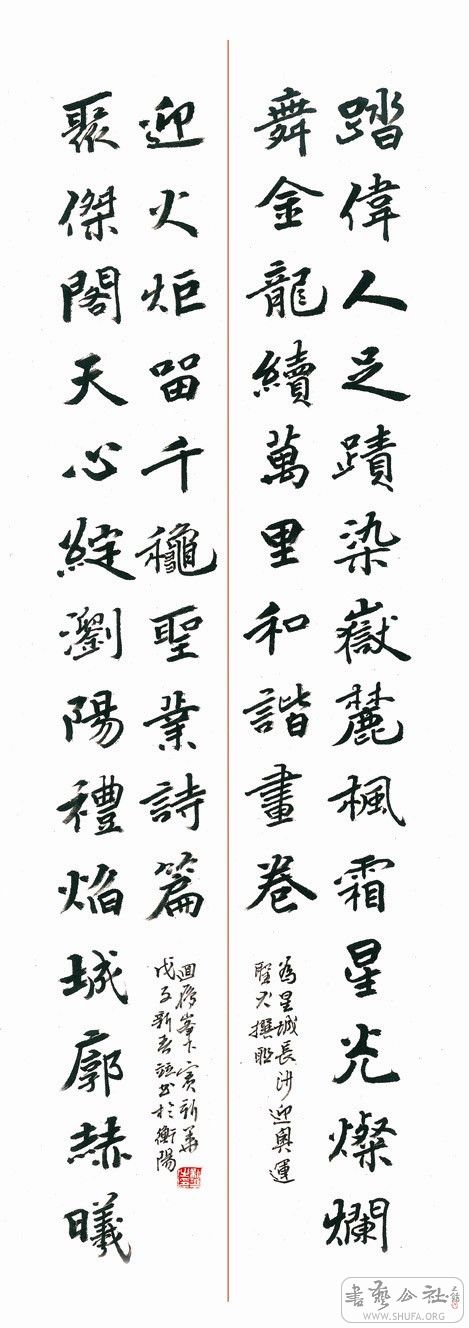 踏偉人足蹟染嶽麓楓霜星光燦爛
舞金龍續萬里和諧畫卷
為星城長沙迎奧運
聖火撰聯
迎火炬留千龝聖業詩篇
聚傑閣天心綻瀏陽禮焰城廓赫曦
迴雁峯下寅新華
戊子新春並書於衡陽
書藝公社
WWW.SHUFA.ORG